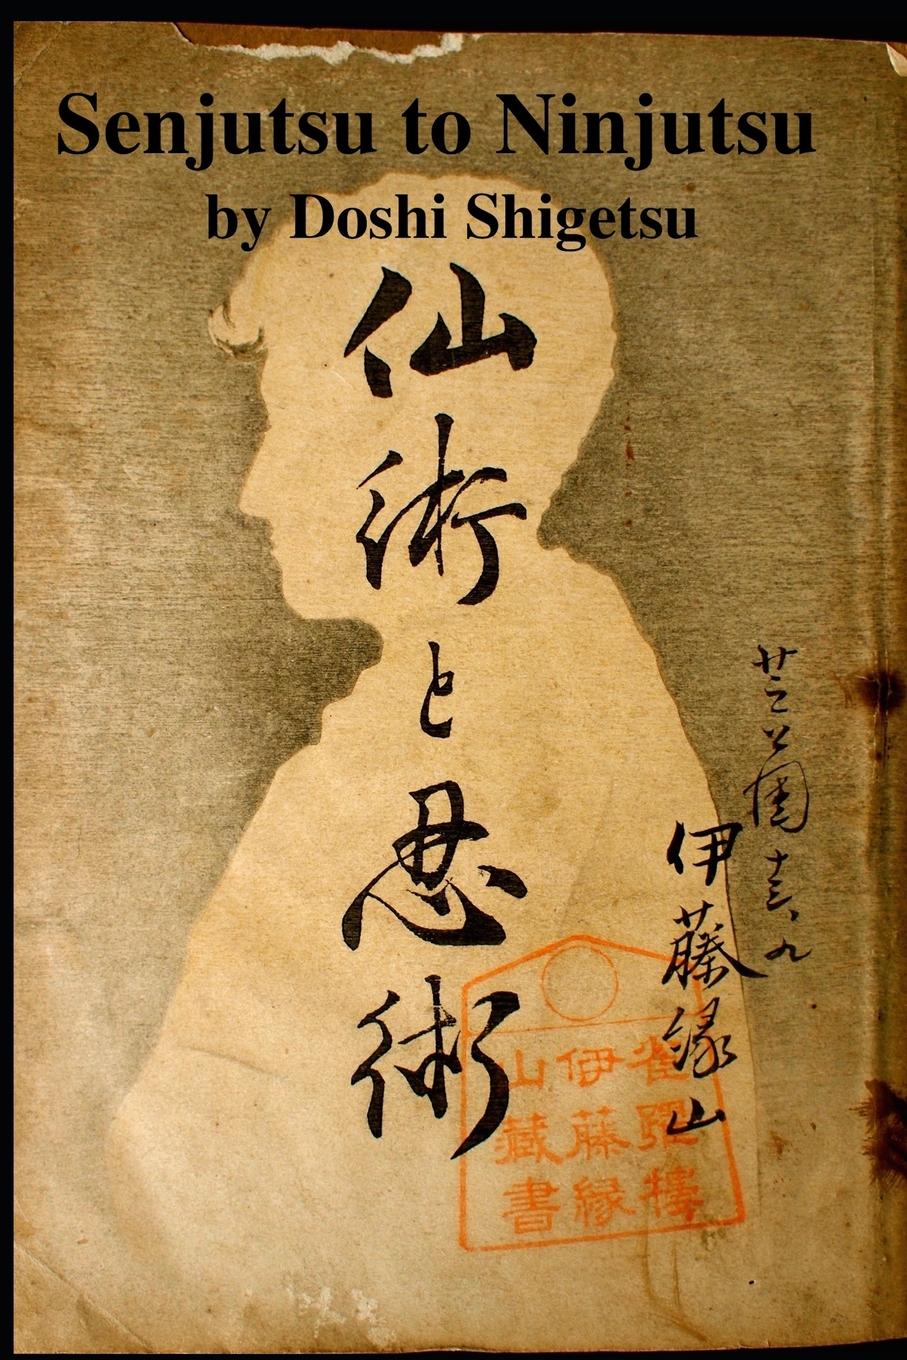 Senjutsu to Ninjutsu
by Doshi Shigetsu
仙術と忍術
芝公園
伊藤縁山
雀
伊藤縁
山藏書